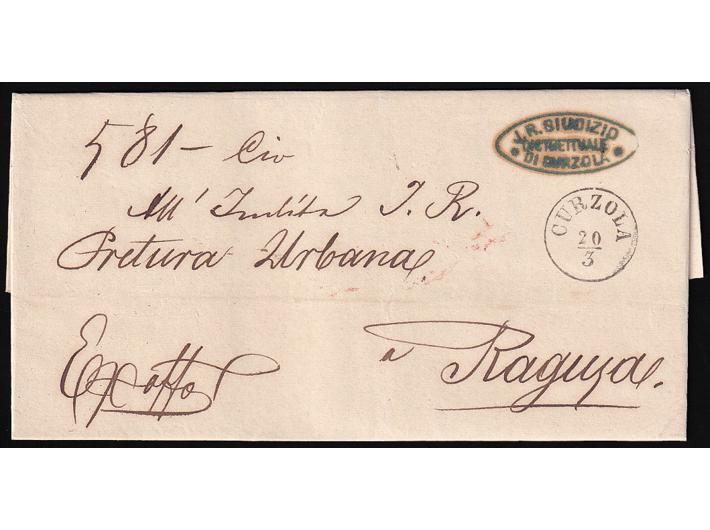 581 - Civ
J. R. GIUDIZIO
DISTRETTUALE
DI CURZOLA
All' Inclita I. R.
Pretura Urbana
CURZOLA
20
3
Ex offo
a
Ragusa.